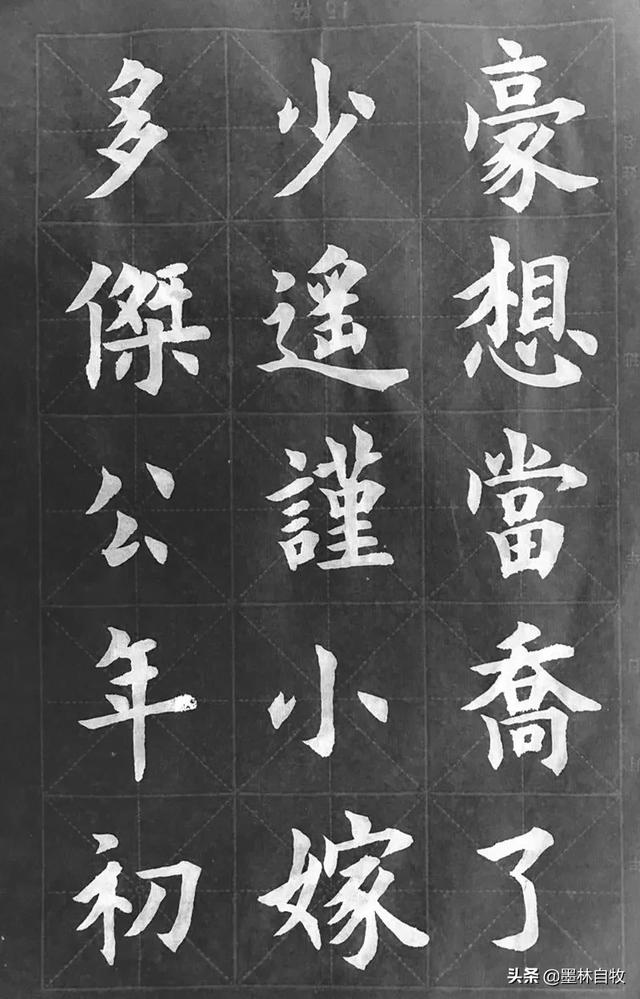 多少豪
傑遥想
公謹當
年小喬
初嫁了
头条 @墨林自牧